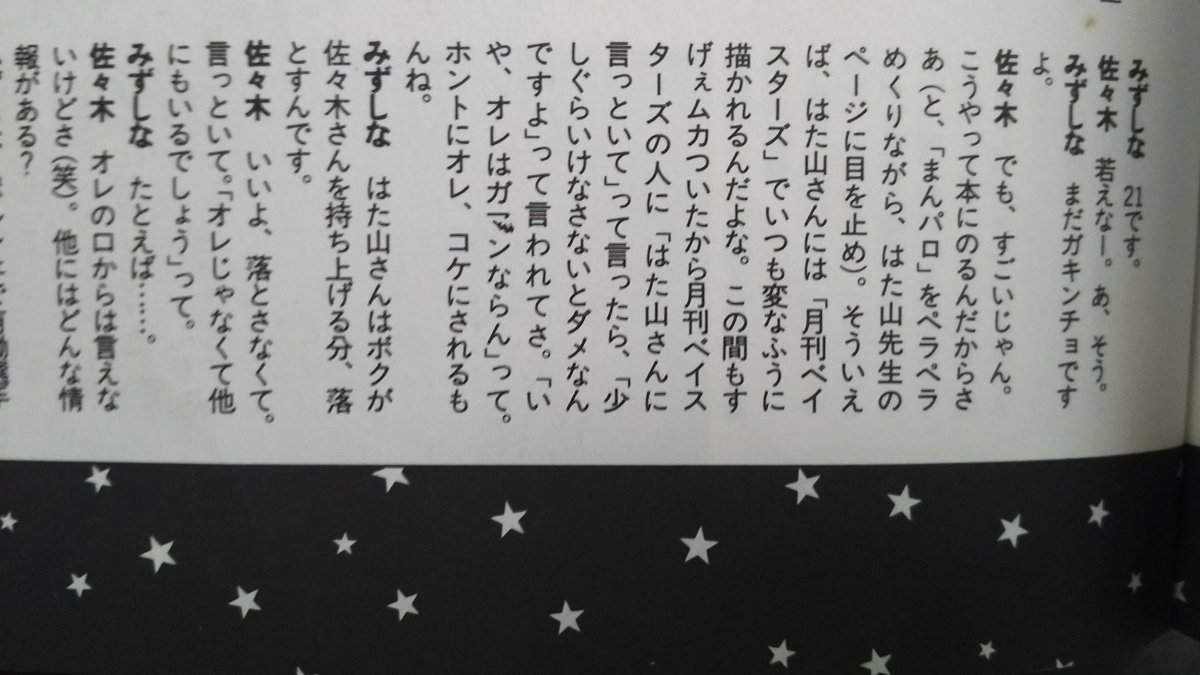 みずしな　21です。
佐々木　若えなー。あ、そう。
みずしな　まだガキンチョです
よ。
佐々木　でも、すごいじゃん。
こうやって本にのるんだからさ
あ（と、「まんパロ」をペラペラ
めくりながら、はた山先生の
ページに目を止め）。そういえ
ば、はた山さんには「月刊ベイ
スターズ」でいつも変なふうに
描かれるんだよな。この間もす
げぇムカついたから月刊ベイス
ターズの人に「はた山さんに
言っといて」って言ったら、「少
しぐらいけなさないとダメなん
ですよ」って言われてさ。「い
や、オレはガマンならん」って。
ホントにオレ、コケにされるも
んね。
みずしな　はた山さんはボクが
佐々木さんを持ち上げる分、落
とすんです。
佐々木　いいよ、落とさなくて。
言っといて。「オレじゃなくて他
にもいるでしょう」って。
みずしな　たとえば……。
佐々木　オレの口からは言えな
いけどさ（笑）。他にはどんな情
報がある？